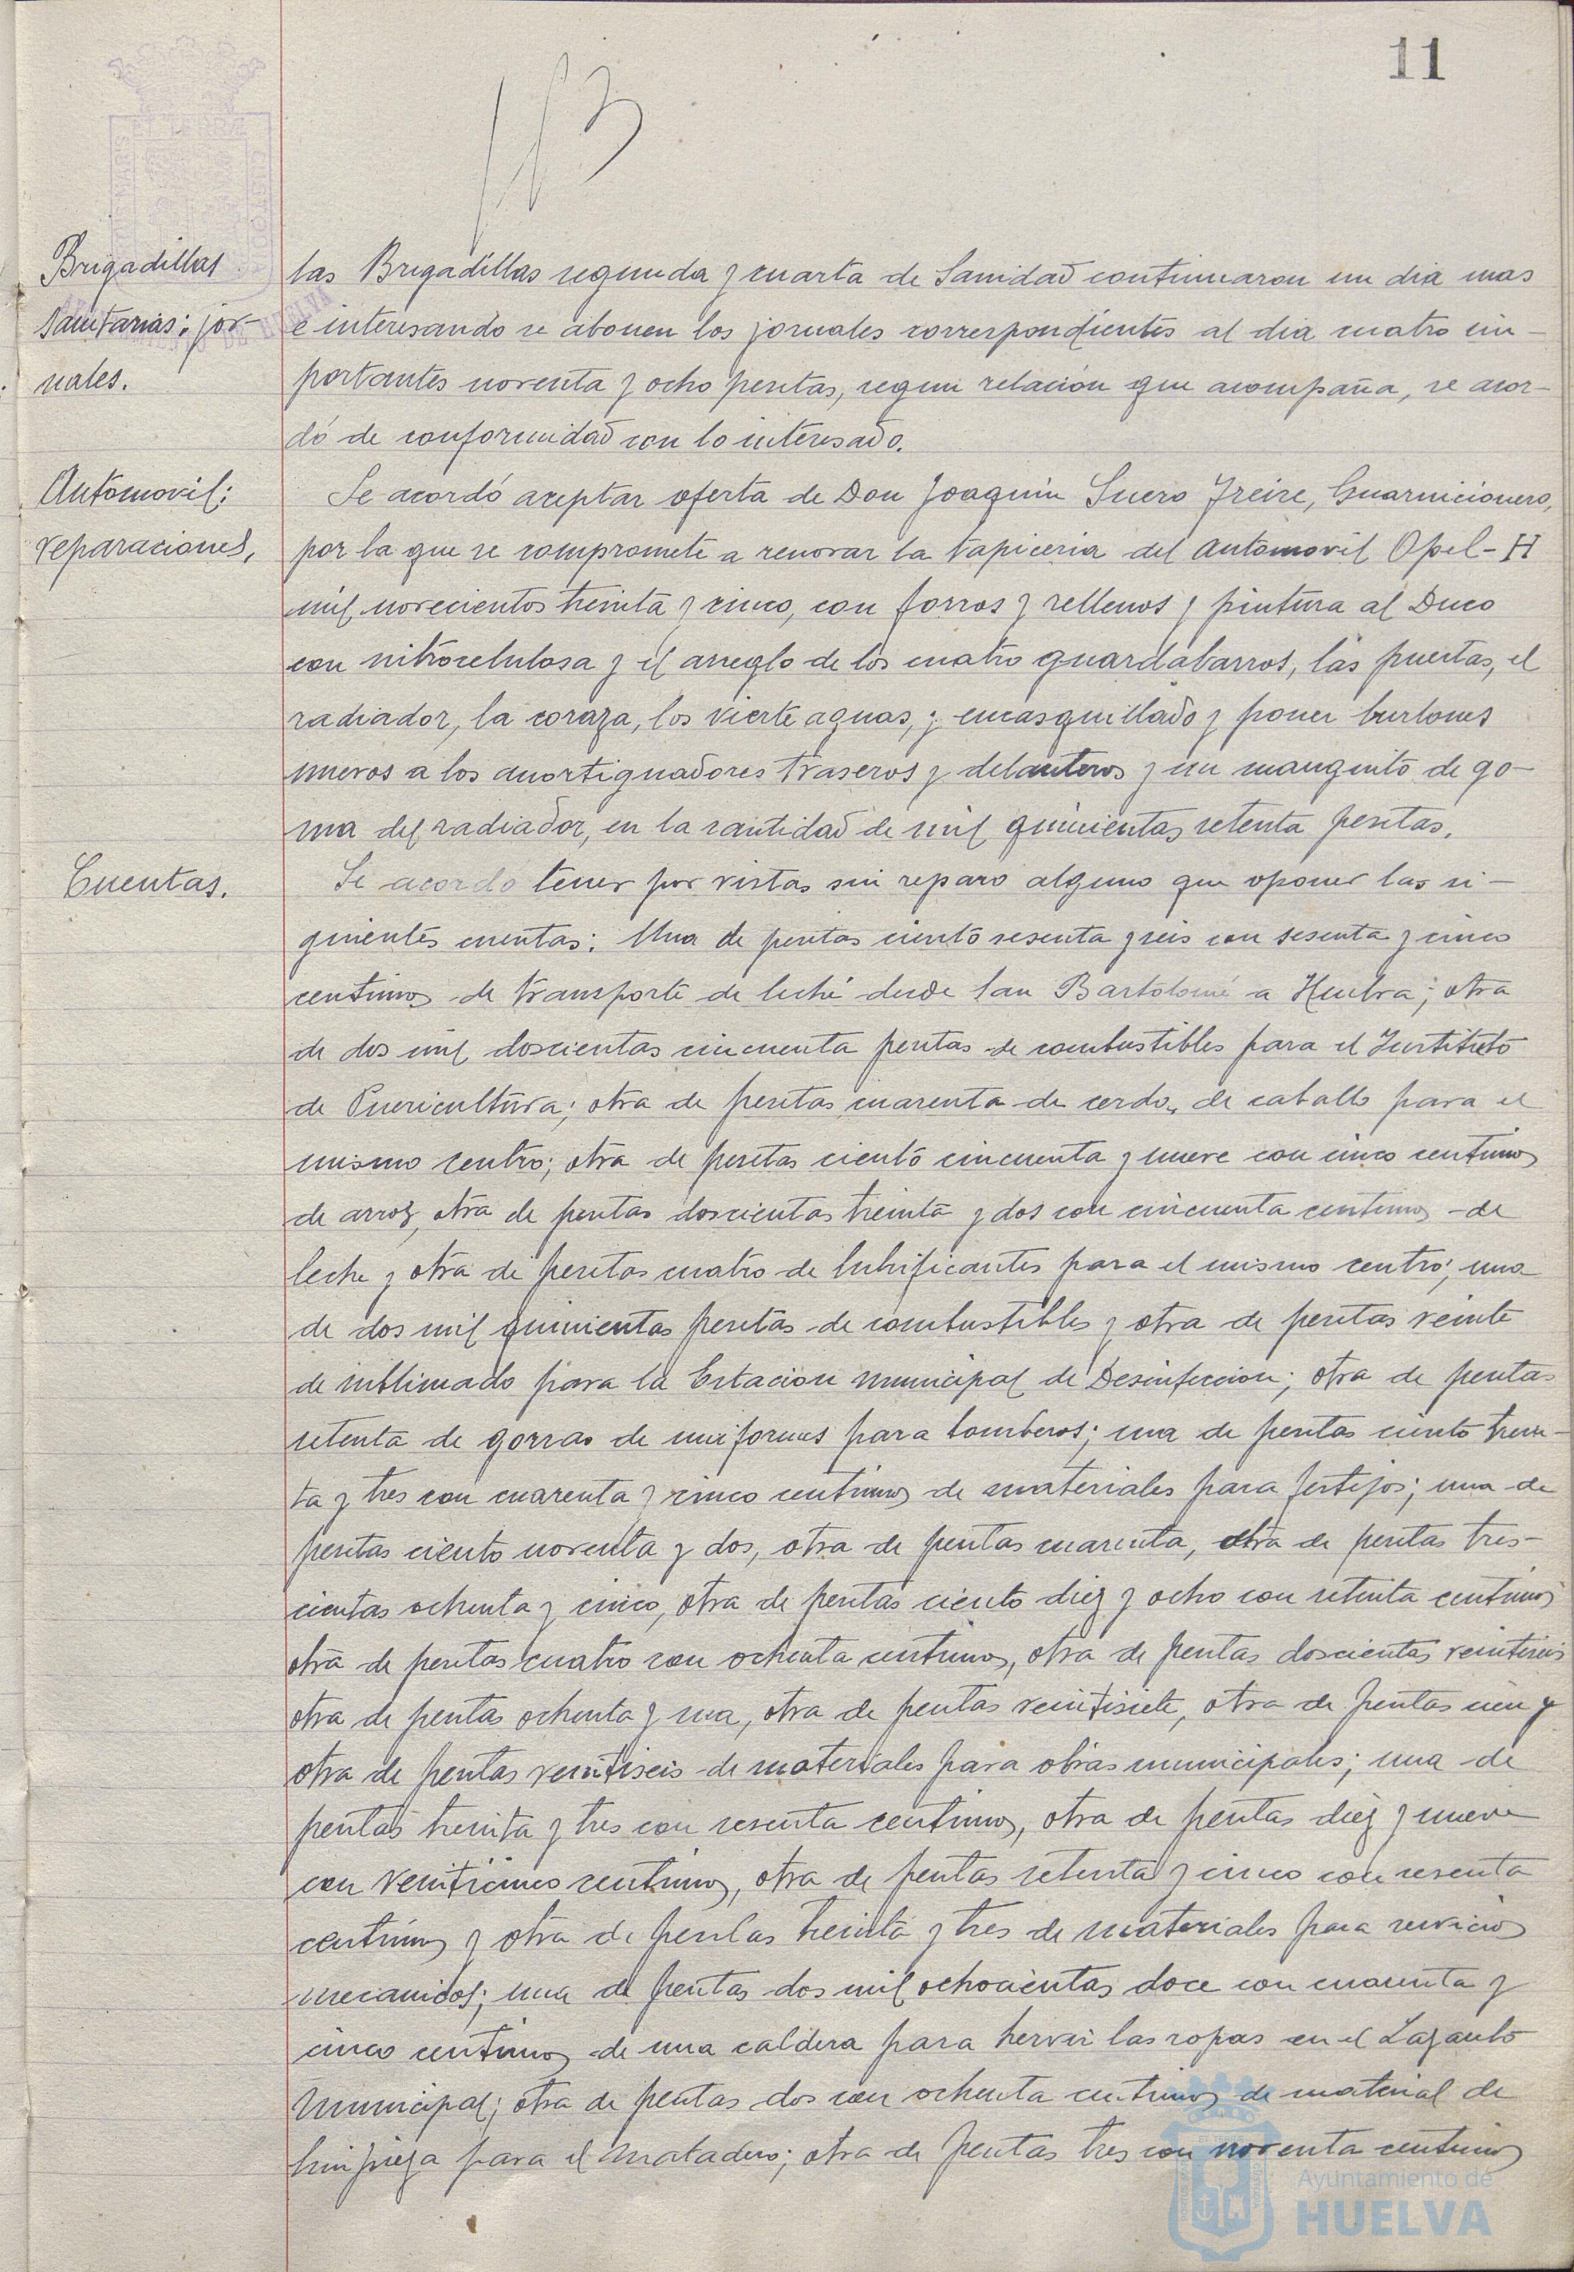 11
113
Brigadillas
sanitarias: jor-
nales.
las Brigadillas segunda y cuarta de Sanidad continuaron un dia mas
e interesando se abonen los jornales correspondientes al dia cuatro im-
portantes noventa y ocho pesetas, segun relación que acompaña, se acor-
dó de conformidad con lo interesado.
Automovil:
reparaciones.
Se acordó aceptar oferta de Don Joaquin Suero Freire, Guarnicionero,
por la que se compromete a renovar la tapiceria del automovil Opel-H
mil novecientos treinta y cinco, con forros y rellenos y pintura al Duco
con nitrocelulosa y el arreglo de los cuatro guardabarros, las puertas, el
radiador, la coraza, los vierte aguas, y encasquillado y poner burlones
nuevos a los amortiguadores traseros y delanteros y un manguito de go-
ma del radiador, en la cantidad de mil quinientas setenta pesetas.
Cuentas.
Se acordo tener por vistas sin reparo alguno que oponer las si-
guientes cuentas: Una de pesetas ciento sesenta y seis con sesenta y cinco
centimos de transporte de leche desde San Bartolomé a Huelva; otra
de dos mil doscientas cincuenta pesetas de combustibles para el Instituto
de Puericultura; otra de pesetas cuarenta de cerdo, de caballo para el
mismo centro; otra de pesetas ciento cincuenta y nueve con cinco centimos
de arroz, otra de pesetas doscientas treinta y dos con cincuenta centimos de
leche y otra de pesetas cuatro de lubrificantes para el mismo centro; una
de dos mil quinientas pesetas de combustibles y otra de pesetas veinte
de sublimado para la Estacion municipal de Desinfeccion; otra de pesetas
setenta de gorras de uniformes para bomberos; una de pesetas ciento trein-
ta y tres con cuarenta y cinco centimos de materiales para festejos; una de
pesetas ciento noventa y dos, otra de pesetas cuarenta, otra de pesetas tres-
cientas ochenta y cinco, otra de pesetas ciento diez y ocho con setenta centimos
otra de pesetas cuatro con ochenta centimos, otra de pesetas doscientas veintiseis
otra de pesetas ochenta y una, otra de pesetas veintisiete, otra de pesetas cien y
otra de pesetas veintiseis de materiales para obras municipales; una de
pesetas treinta y tres con sesenta centimos, otra de pesetas diez y nueve
con veinticinco centimos, otra de pesetas setenta y cinco con sesenta
centimos y otra de pesetas treinta y tres de materiales para servicios
mecanicos; una de pesetas dos mil ochocientas doce con cuarenta y
cinco centimos de una caldera para hervir las ropas en el Lazareto
Municipal; otra de pesetas dos con ochenta centimos de material de
limpieza para el Matadero; otra de pesetas tres con noventa centimos
Ayuntamiento de
HUELVA